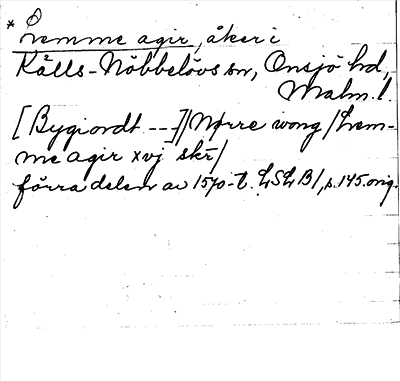 * Lemme agir, åker i
Källs-Nöbbelövs sn, Onsjö hd,
Malm. l.
[Bygiordt ---]/Nørre wong/Lem-
me agir xvj skr/
förra delen av 1570-t. LSLB1, s. 145. orig.